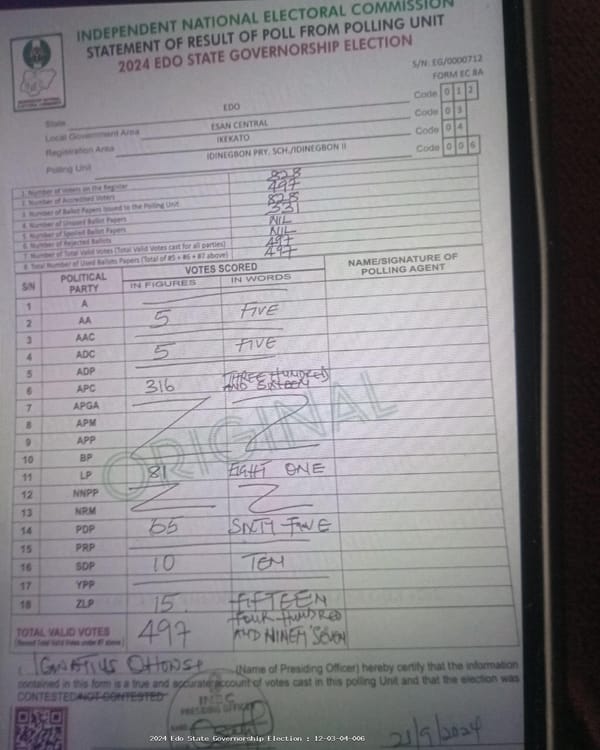 INDEPENDENT NATIONAL ELECTORAL COMMISSION
STATEMENT OF RESULT OF POLL FROM POLLING UNIT
2024 EDO STATE GOVERNORSHIP ELECTION
S/N: EG/0000712
FORM EC 8A
State EDO Code 0 1 2
Local Government Area ESAN CENTRAL Code 0 3
Registration Area IKEKATO Code 0 4
Polling Unit IDINEGBON PRY. SCH./IDINEGBON II Code 0 0 6
1. Number of Voters on the Register 828
2. Number of Accredited Voters 497
3. Number of Ballot Papers Issued to the Polling Unit 828
4. Number of Unused Ballot Papers 331
5. Number of Spoiled Ballot Papers NIL
6. Number of Rejected Ballots NIL
7. Number of Total Valid Votes (Total Valid Votes cast for all parties) 497
8. Total Number of Used Ballots Papers (Total of #5 + #6 + #7 above) 497
S/N POLITICAL PARTY VOTES SCORED NAME/SIGNATURE OF POLLING AGENT
IN FIGURES IN WORDS
1 A
2 AA 5 FIVE
3 AAC
4 ADC 5 FIVE
5 ADP
6 APC 316 THREE HUNDRED AND SIXTEEN
7 APGA
8 APM
9 APP
10 BP
11 LP 81 EIGHT ONE
12 NNPP
13 NRM
14 PDP 65 SIXTY FIVE
15 PRP
16 SDP 10 TEN
17 YPP
18 ZLP 15 FIFTEEN
TOTAL VALID VOTES 497 FOUR HUNDRED AND NINETY SEVEN
ORIGINAL
I, IGNATIUS (Name of Presiding Officer) hereby certify that the information
contained in this form is a true and accurate account of votes cast in this polling Unit and that the election was
CONTESTED/NOT CONTESTED
INEC
PRESIDING OFFICER
21/9/2024
2024 Edo State Governorship Election : 12-03-04-006